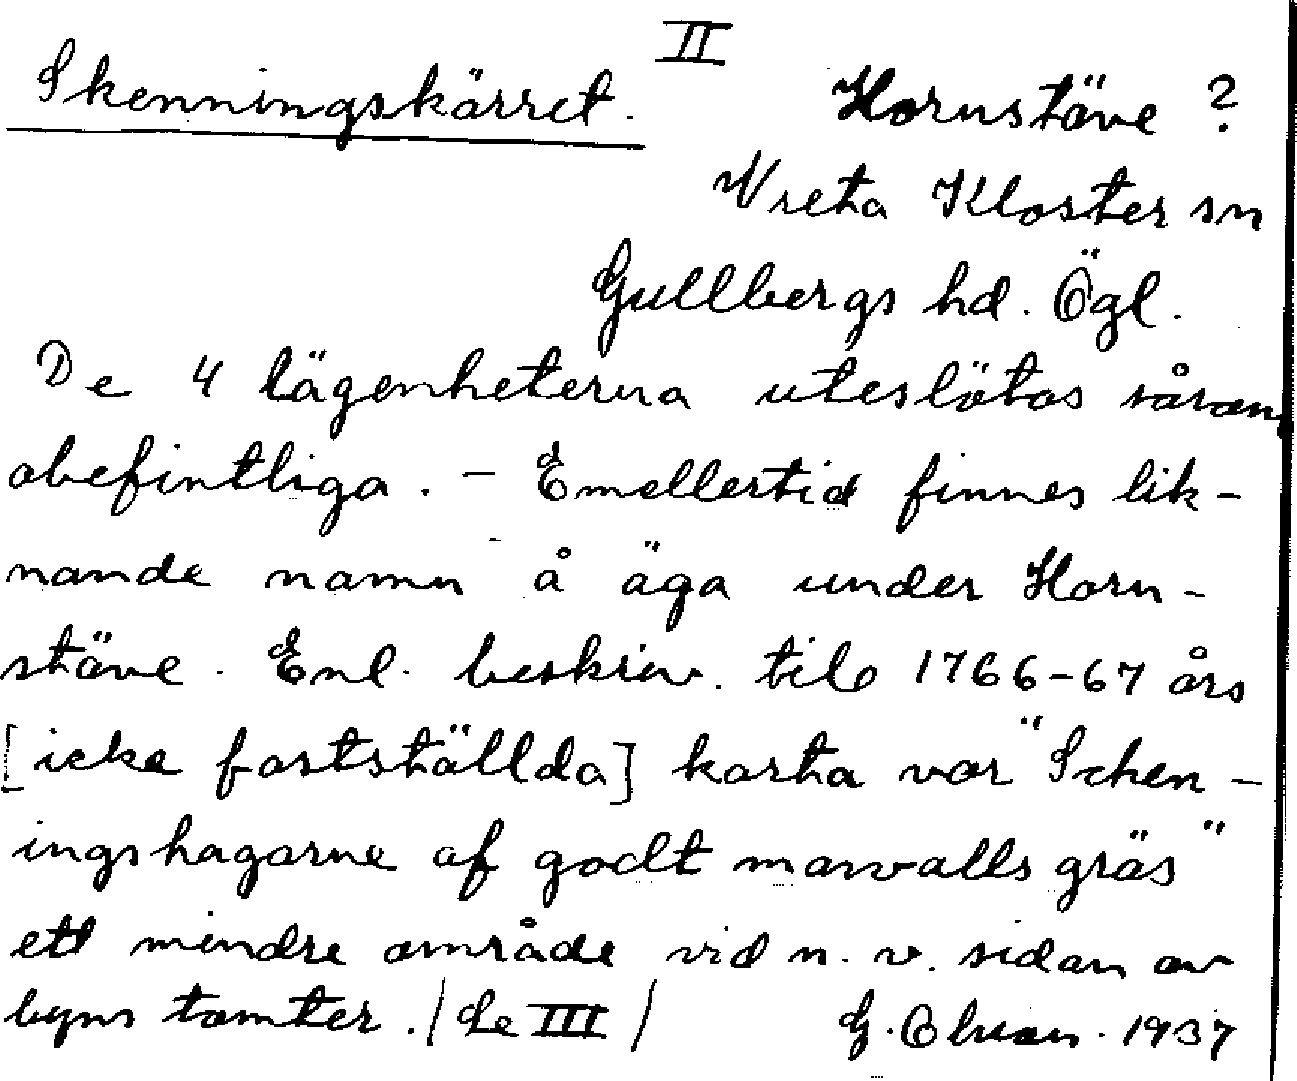 II
Skenningskärret. Hornstäve ?
Vreta Kloster sn
Gullbergs hd. Ögl.
De 4 lägenheterna uteslötos såsom
obefintliga. - Emellertid finnes lik-
nande namn å äga under Horn-
stäve. Enl. beskriv. till 1766-67 års
[icke fastställda] karta var "Schen-
ingshagarne af godt marvalls gräs"
ett mindre område vid n. v. sidan av
byns tomter. / Se III / G. 1937